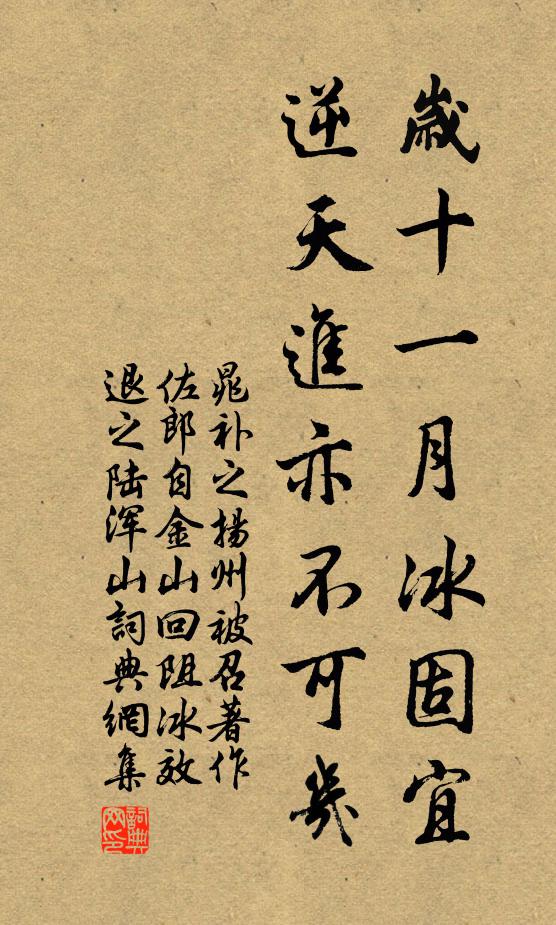 歲十一月冰固宜
逆天進亦不可幾
晁补之揚州被召著作
佐郎自金山回阻冰效
退之陆渾山詞典網集
詞典
网印